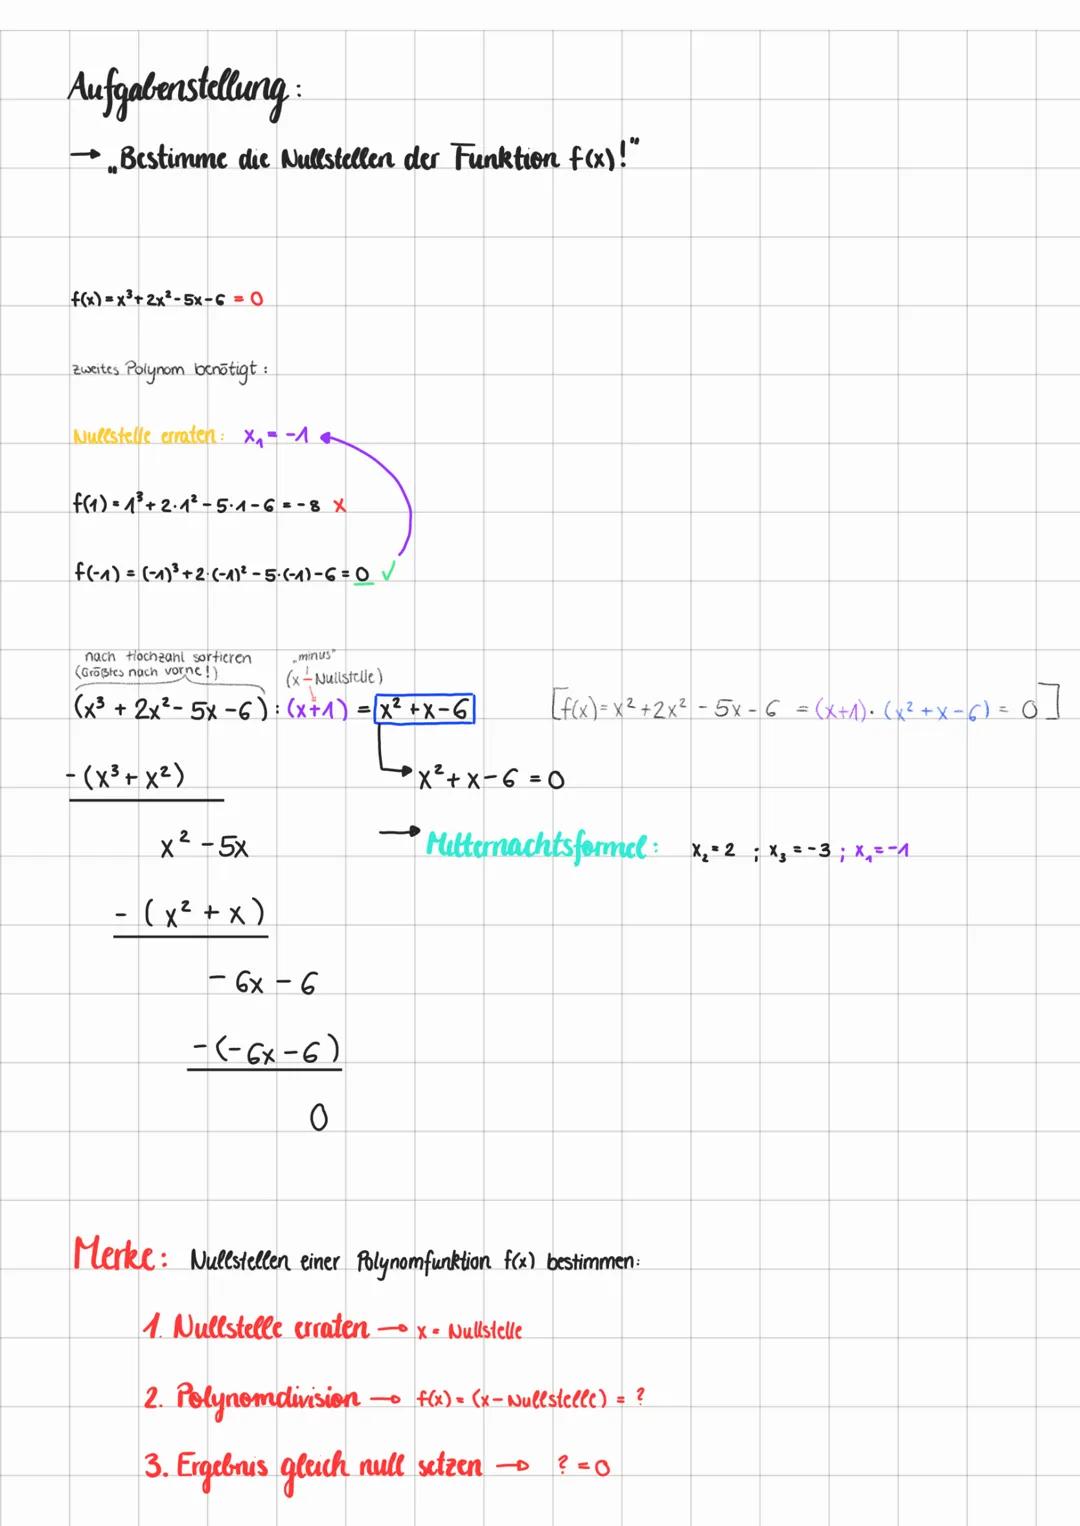 Aufgabenstellung:
→ „Bestimme die Nullstellen der Funktion f(x)!"
f(x) = x³ + 2x² - 5x - 6 = 0
zweites Polynom benötigt:
Nullstelle erraten: x₁ = -1
f(1) = 1³ + 2·1² - 5·1 - 6 = -8 x
f(-1) = (-1)³ + 2·(-1)² - 5·(-1) - 6 = 0 ✓
nach Hochzahl sortieren „minus"
(Größtes nach vorne!) (x - Nullstelle)
(x³ + 2x² - 5x - 6) : (x+1) = x² + x - 6 [f(x) = x² + 2x² - 5x - 6 = (x+1) · (x² + x - 6) = 0]
- (x³ + x²) x² + x - 6 = 0
x² - 5x → Mitternachtsformel: x₂ = 2 ; x₃ = -3 ; x₁ = -1
- (x² + x)
- 6x - 6
- (- 6x - 6)
0
Merke: Nullstellen einer Polynomfunktion f(x) bestimmen:
1. Nullstelle erraten → x = Nullstelle
2. Polynomdivision → f(x) = (x - Nullstelle) = ?
3. Ergebnis gleich null setzen → ? = 0